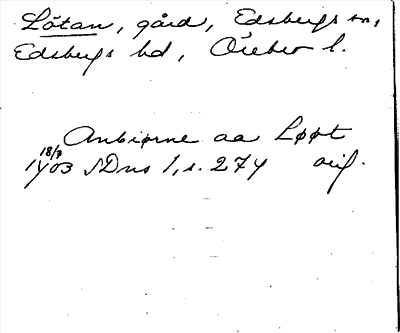 Lötan, gård, Edsbergs sn,
Edsbergs hd, Örebro l.
Anbiørne aa Løøt
18/7 1403 SDns 1, s. 274 orig.